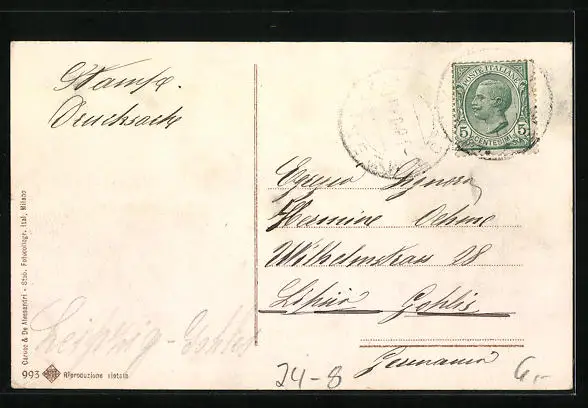 Stampe.
Drucksache
POSTE ITALIANE
5 5
CENTESIMI
Signora
Hermine Oehme
Wilhelmstrass 28
Lipsia Gohlis
Germania
Leipzig-Gohlis
24-8
6,-
Caruso & De Alessandri - Stab. Fotocolligr. Ital. Milano
993 Riproduzione vietata